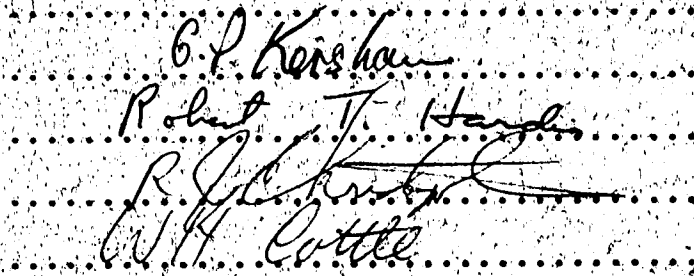 G. P. Kershaw
Robert T. Harden
R J Christoph
W H Cottle